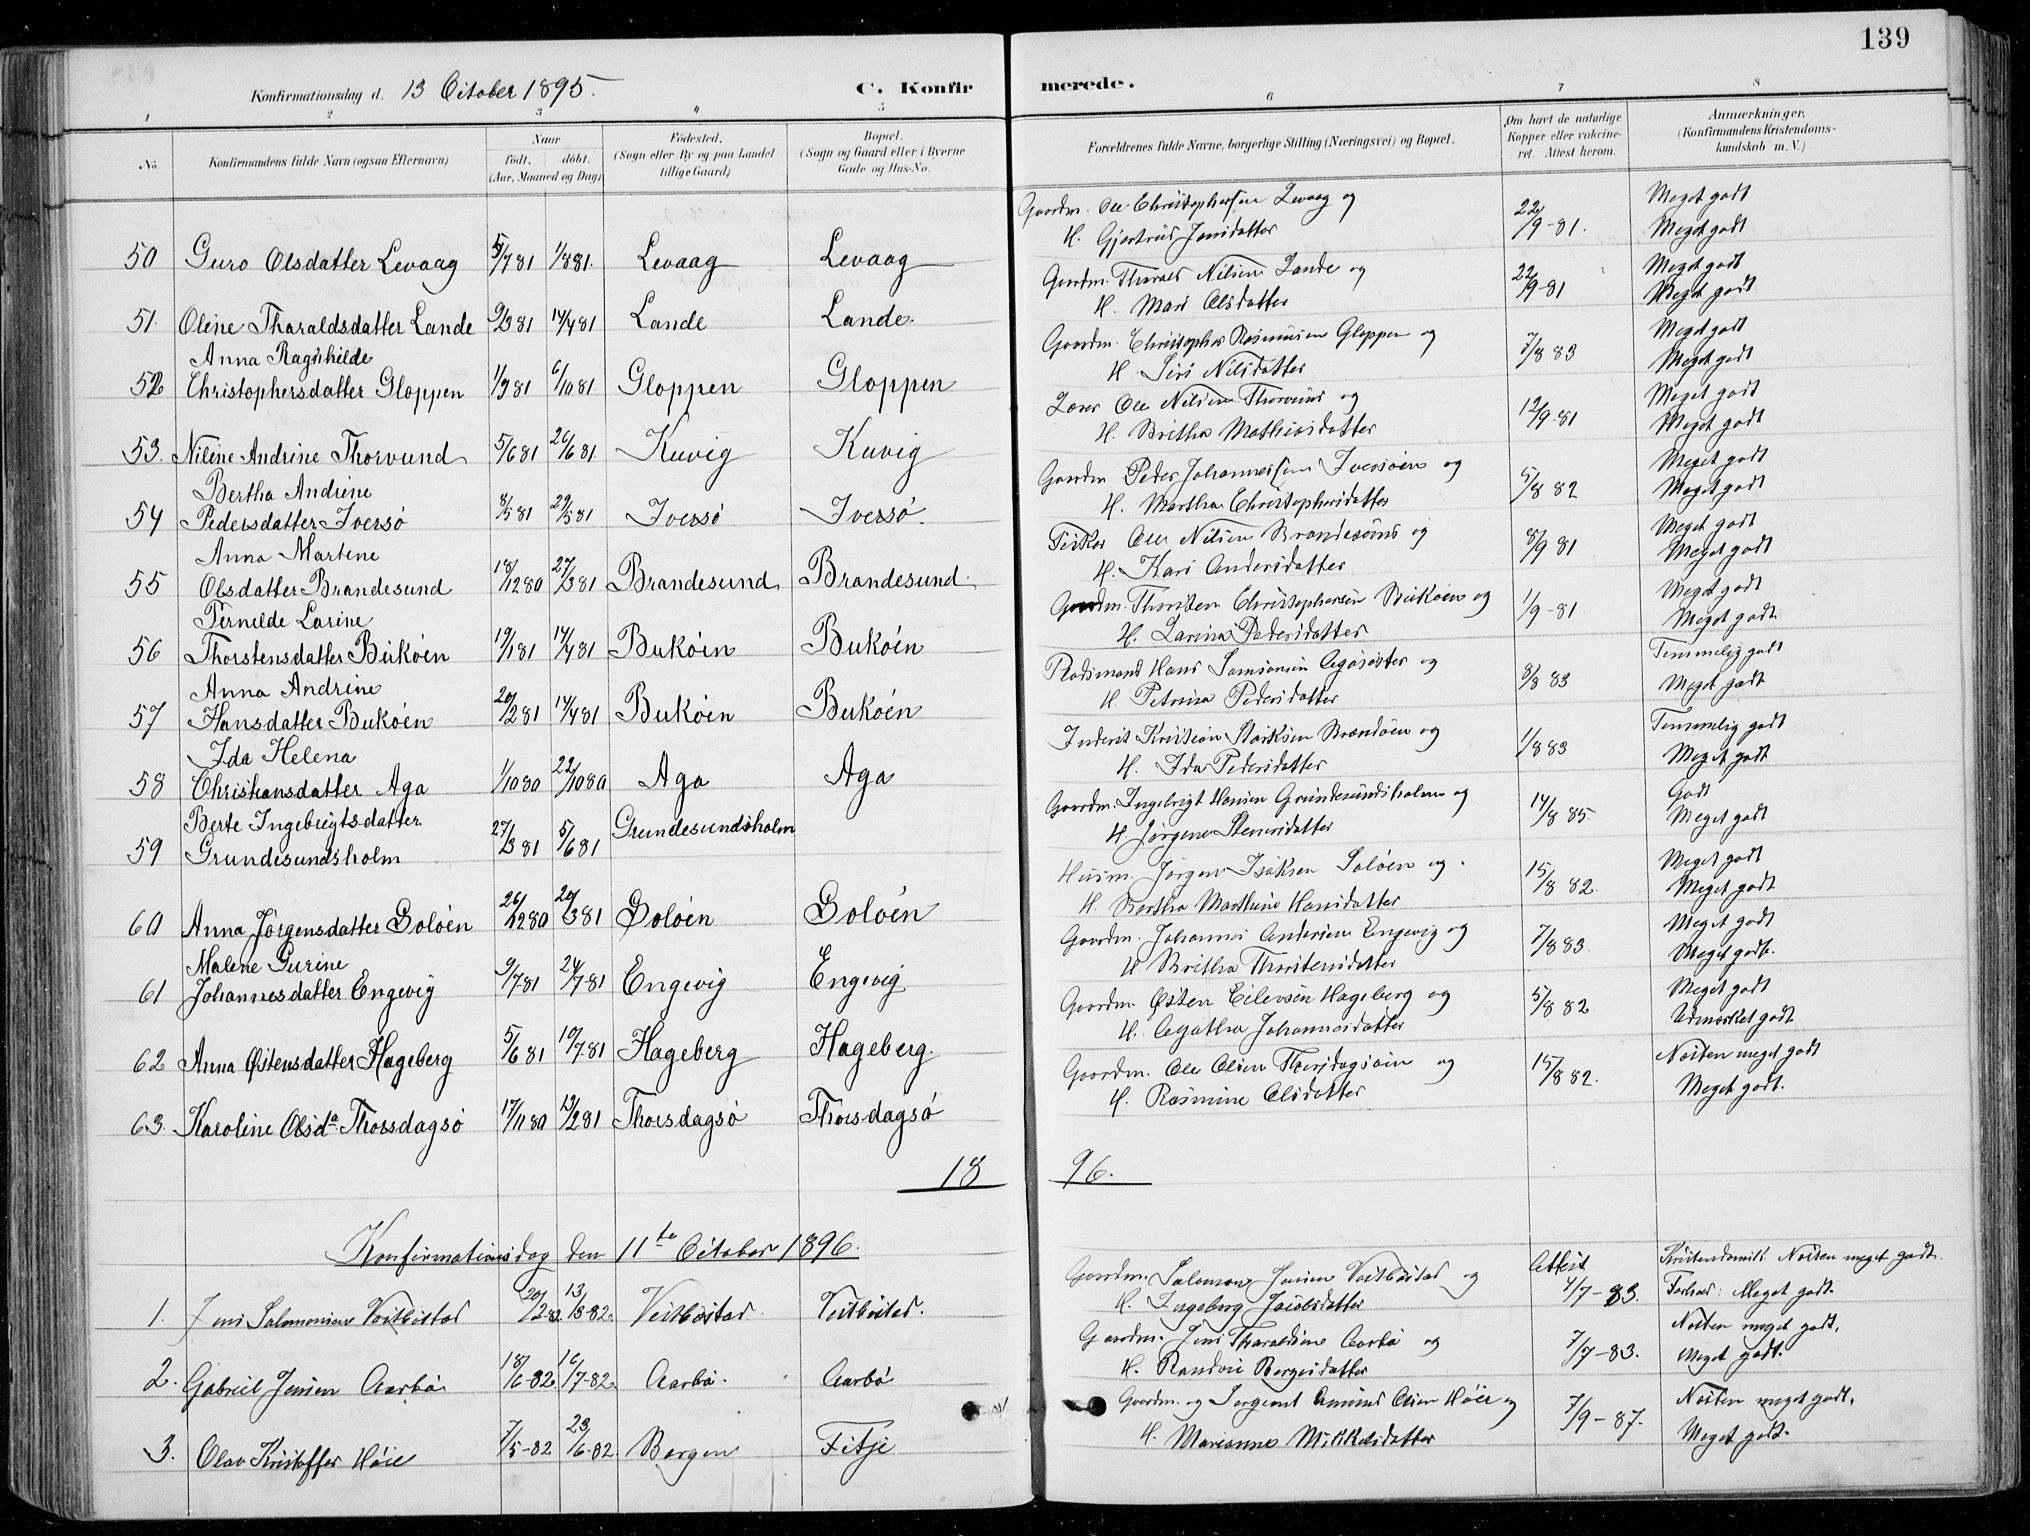 139
Konfirmationsdag d. 13 October 1895.
C. Konfirmerede.
1 2 3 4 5 6 7 8
No.
Konfirmandens fulde Navn (ogsaa Efternavn)
Naar
født, døbt.
(Aar, Maaned og Dag)
Fødested.
(Sogn eller By og paa Landet tillige Gaard)
Bopæl.
(Sogn og Gaard eller i Byerne Gade og Hus-No.
Forældrenes fulde Navne, borgerlige Stilling (Næringsvei) og Bopæl.
Om havt de naturlige Kopper eller vakcineret. Attest herom.
Anmærkninger.
(Konfirmandens Kristendomskundskab m. V.)
50 Guro Olsdatter Levaag 5/7 81 1/8 81. Levaag Levaag Gaardm. Ole Christophersen Levaag og 22/9-81. Meget godt
H. Gjertrud Jensdatter Meget godt
51. Oline Tharaldsdatter Lande 9/3 81 14/4 81 Lande Lande. Gaardm. Tharald Nilsen Lande og 22/9-81 Meget godt
H. Mari Olsdatter Meget godt
Anna Ragnhilde
52 Christophersdatter Gloppen 1/9 81 6/10 81 Gloppen Gloppen Gaardm. Christopher Rasmusen Gloppen og 7/8 83 Meget godt
H. Siri Nilsdatter Meget godt
53. Niline Andrine Thorvund 5/6 81 26/6 81 Kuvig Kuvig Lærer Ole Nilsen Thorvund og 12/9-81 Meget godt
H. Britha Mathiasdatter Meget godt
Bertha Andrine
54 Pedersdatter Iversø 8/5 81 29/5 81 Iversø Iversø. Gaardm Peder Johannessen Iversøen og 5/8 82 Meget godt
H. Martha Christophersdatter Meget godt
Anna Martene
55 Olsdatter Brandesund 18/12 80 27/3 81 Brandesund Brandesund. Fisker Ole Nilsen Brandesund og 8/9 81 Meget godt
H. Kari Andersdatter Meget godt
Pernilde Larine
56 Thorstensdatter Bukøen 19/1 81 14/4 81 Bukøen Bukøen Gaardm. Thorsten Christophersen Bukøen og 1/9-81 Meget godt
H. Larina Pedersdatter Meget godt.
Anna Andrine
57 Hansdatter Bukøen 20/2 81 14/4 81 Bukøen Bukøen Pladsmand Hans Samsonsen Agasøster og 8/8 83 Temmelig godt
H. Petrina Pedersdatter Meget godt
Ida Helena
58 Christiansdatter Aga 1/10 80 22/10 80 Aga Aga Inderst Kristian Starksen Brandøen og 1/8 83 Temmelig godt
H. Ida Pedersdatter Meget godt
Berte Ingebrigtsdatter
59 Grundesundsholm 27/3 81 5/6 81 Grundesundsholm Gaardm. Ingebrigt Hansen Grundesundsholm og 14/8 85. Godt
H. Jørgene Stenersdatter Meget godt
60 Anna Jørgensdatter Soløen 26/12 80 20/3 81 Soløen Soløen Husm. Jørgen Isaksen Soløen og 15/8 82. Meget godt
H Bertha Marthine Hansdatter Meget godt
Malene Gurine
61 Johannesdatter Engevig 9/7-81 24/7 81 Engevig Engevig Gaardm. Johannes Andersen Engevig og 7/8 83. Meget godt
H Britha Thorstensdatter Meget godt.
62 Anna Østensdatter Hageberg 5/6 81 10/7 81 Hageberg Hageberg. Gaardm. Østen Eilevsen Hageberg og 5/8 82. Meget godt
H. Agatha Johannesdatter Udmærket godt
63. Karoline Olsda Thorsdagsø 17/11 80 13/2 81 Thorsdagsø Thorsdagsø Gaardm. Ole Olsen Thorsdagsøen og 15/8 82. Næsten meget godt
H. Rasmine Olsdatter Meget godt.
18 96.
Konfirmationsdag den 11te October 1896.
1. Jens Salomonsen Vestbøstad 20/2 82 13/3-82. Vestbøstad. Vestbøstad. Gaardm. Salomon Jensen Vestbøstad og Attest 4/7-83. Kristendomsk. Næsten meget godt.
H. Ingeborg Jacobsdatter Forhold: Meget godt.
2. Gabriel Jensen Aarbø. 18/6-82 16/7-82. Aarbø. Aarbø Gaardm. Jens Tharaldsen Aarbø og 7/7-83. Næsten meget godt.
H. Randvei Børgesdatter Meget godt.
3. Olav Kristoffer Høie 7/5-82 23/6-82 Bergen Fitje Gaardm. og Sergeant Amund Olsen Høie og 7/9-87. Næsten meget godt.
H. Marianne Mikkelsdatter Meget godt.